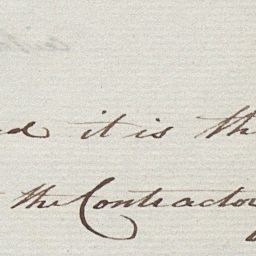 it is th
the Contractor